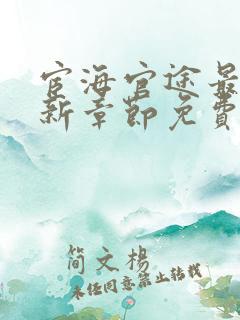 宦海官途最
新章節免費
简文楊
未经同意禁止转载